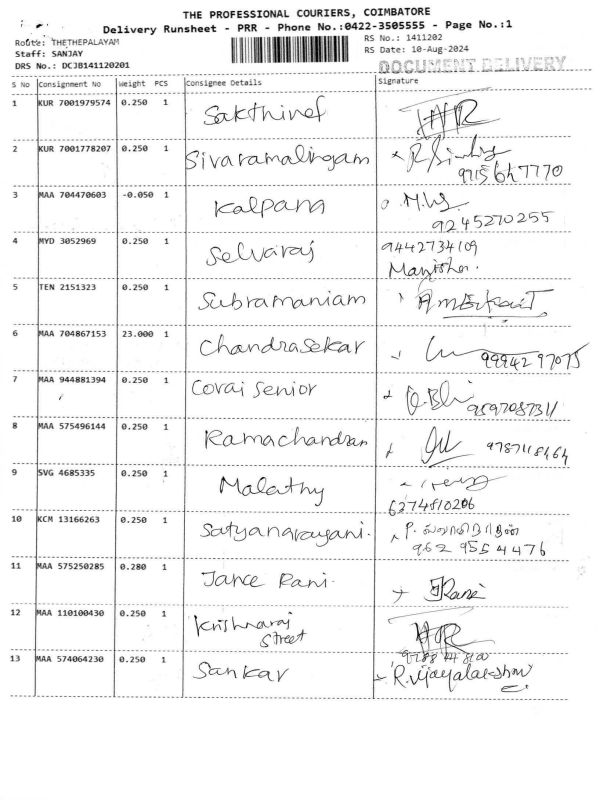 THE PROFESSIONAL COURIERS, COIMBATORE
Delivery Runsheet - PRR - Phone No.:0422-3505555 - Page No.:1
Route: THETHEPALAYAM
RS No.: 1411202
Staff: SANJAY
RS Date: 10-Aug-2024
DRS No.: DCJB141120201
DOCUMENT DELIVERY
S No Consignment No Weight PCS Consignee Details Signature
1 KUR 7001979574 0.250 1 Sakthivel
2 KUR 7001778207 0.250 1 Sivaramalingam
3 MAA 704470603 -0.050 1 Kalpana
9245270255
4 MYD 3052969 0.250 1 Selvaraj 9442734109
5 TEN 2151323 0.250 1 Subramaniam
6 MAA 704867153 23.000 1 Chandrasekar 9994297075
7 MAA 944881394 0.250 1 Covai Senior
8 MAA 575496144 0.250 1 Ramachandran
9 SVG 4685335 0.250 1 Malathy
6274810206
10 KCM 13166263 0.250 1 Satyanarayani. P.
962 955 4476
11 MAA 575250285 0.280 1 Rani.
12 MAA 110100430 0.250 1 Krishnaraj
Street
13 MAA 574064230 0.250 1 Sankar